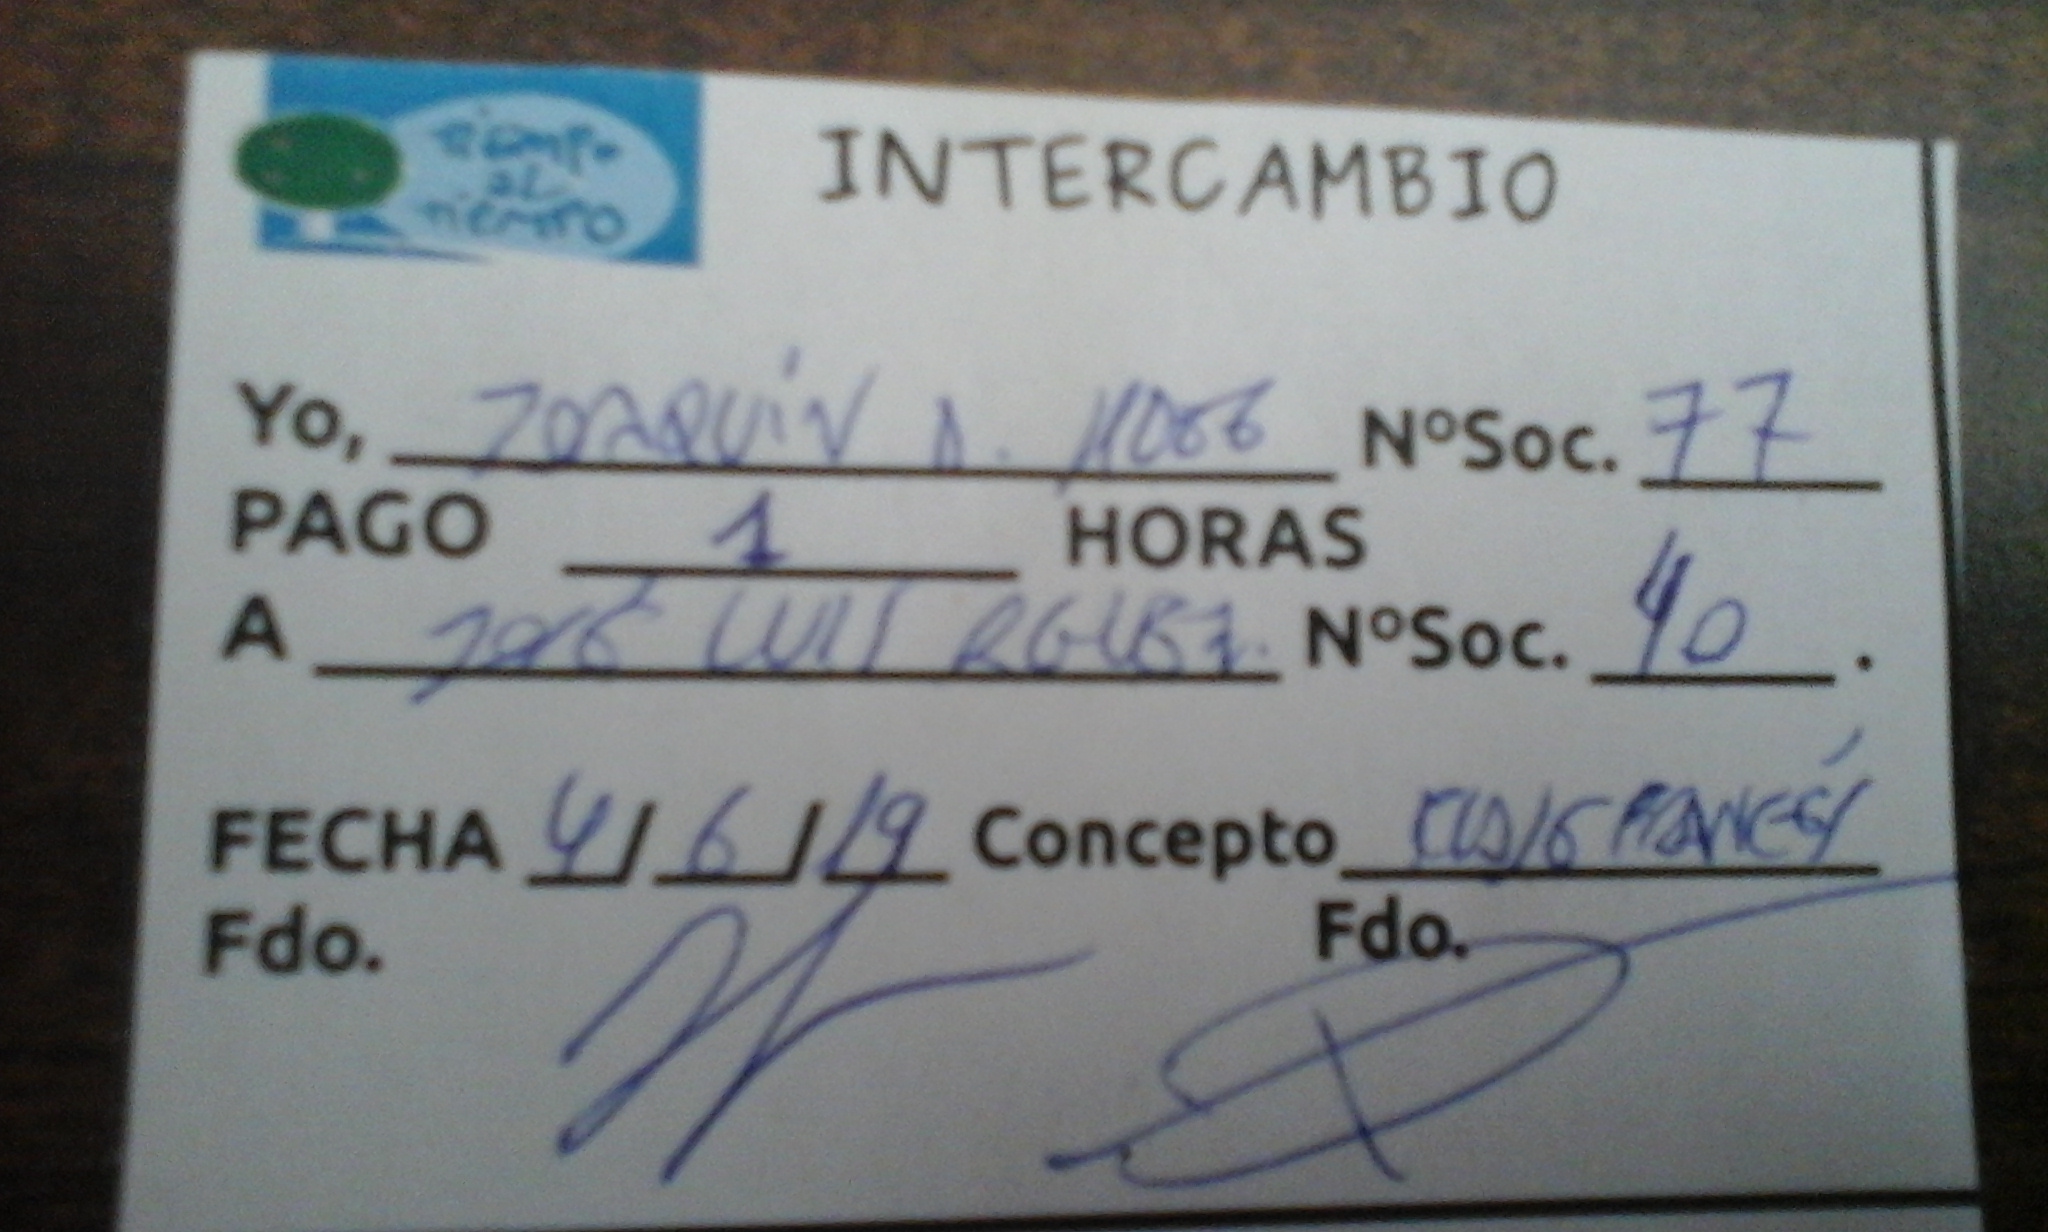 tiempo
al
tiempo
INTERCAMBIO
Yo, JOAQUÍN A. Nº Soc. 77
PAGO 1 HORAS
A JOSÉ LUIS RGUEZ. Nº Soc. 40.
FECHA 4/6/19 Concepto FRANCÉS
Fdo. Fdo.